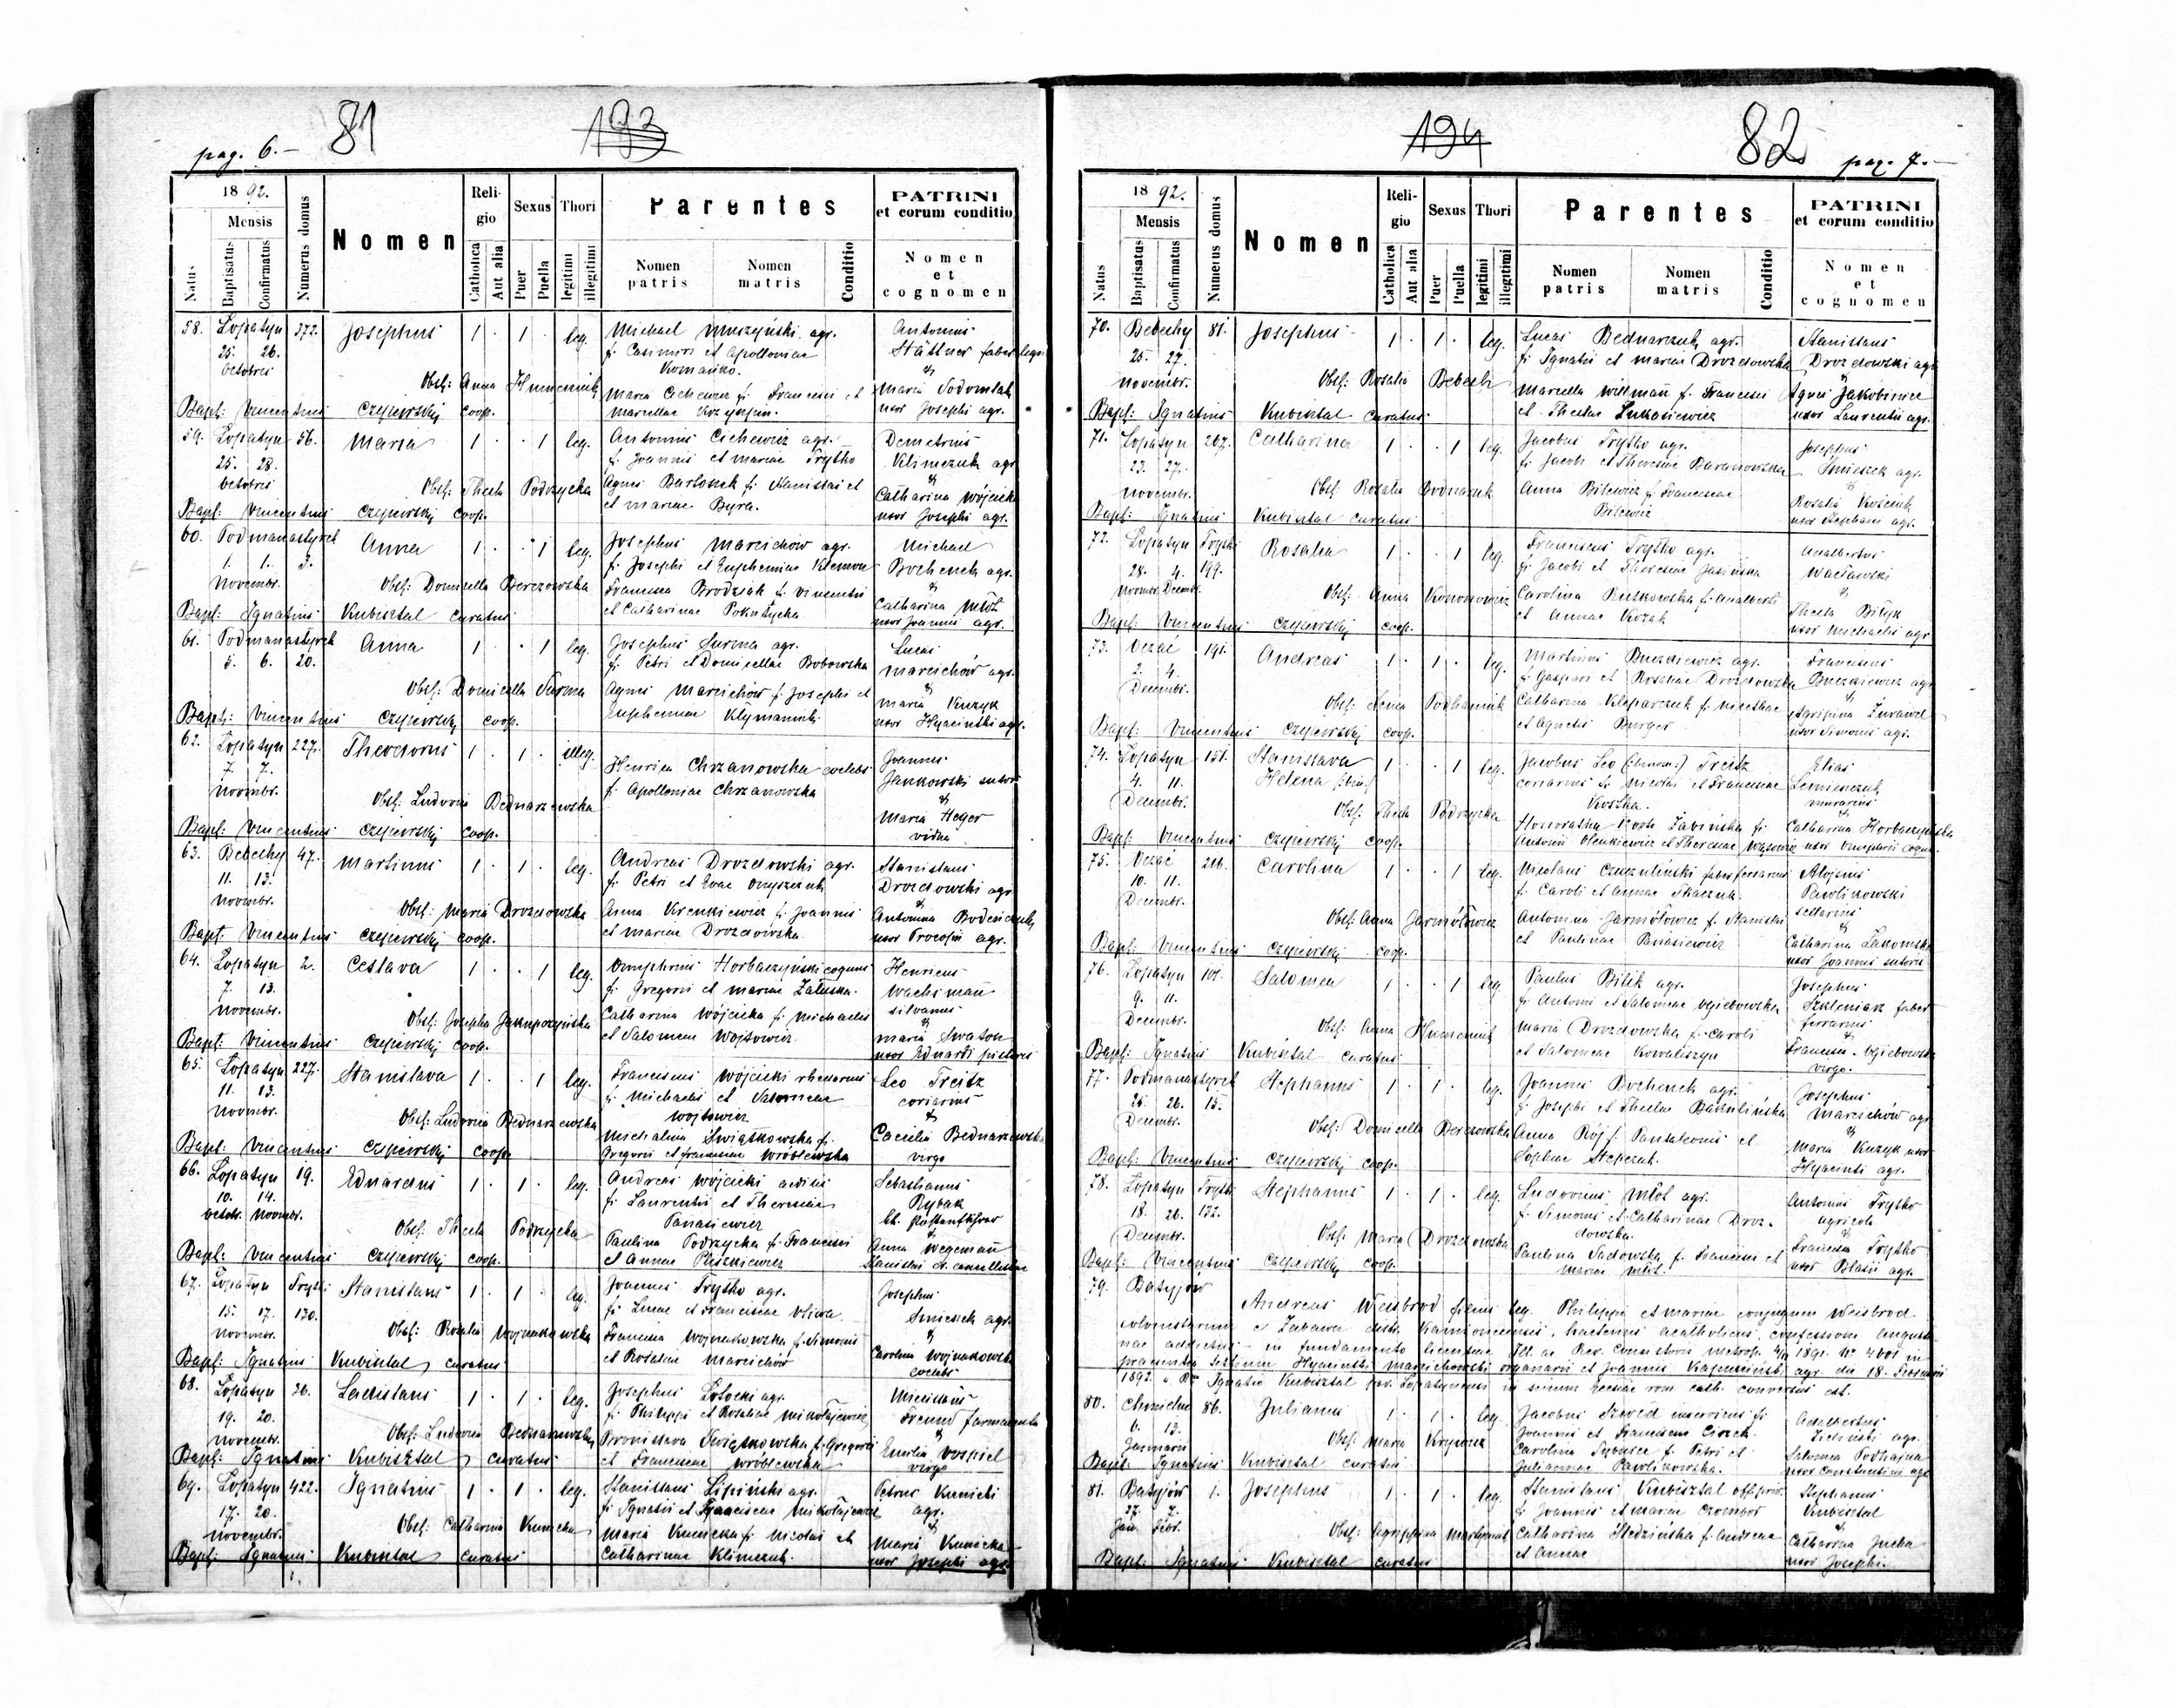 pag. 6.-
81
193
18 92.
Mensis
Natus
Baptisatus
Confirmatus
Numerus domus
Nomen
Religio
Catholica
Aut alia
Sexus
Puer
Puella
Thori
legitimi
illegitimi
Parentes
Nomen patris
Nomen matris
Conditio
PATRINI
et eorum conditio
Nomen
et
cognomen
58. Lopatyn 372. Josephus 1 . 1 . leg. Michael agr. Antonius
25. 26. f. Casimiri et Apolloniae
octobris
Obst: Anna Humeniuk Maria Cichewicz f. Francisci et Maria
Marcellae uxor Josephi agr.
Bapt: Vincentius Czyżewski coop.
59. Lopatyn 56. Maria 1 . . 1 leg. Antonius Cichewicz agr. Demetrius
25. 28. f. Joannis et Mariae Trytko Klimczuk agr.
octobris &
Obst: Thecla Podrzycka Agnes Bartoszek f. Stanislai et Catharina Wójcicka
et Mariae Byra. uxor Josephi agr.
Bapt: Vincentius Czyżewski coop.
60. Podmanastyrek Anna 1 . . 1 leg. Josephus Marcichow agr. Michael
1. 1. 3. f. Josephi et Euphemiae Bochenek agr.
Novembr. &
Obst: Domicella Berezowska Francisca Brodziak f. Vincentii Catharina Młot
et Catharinae uxor Joannis agr.
Bapt: Ignatius Kubisztal curatus
61. Podmanastyrek Anna 1 . . 1 leg. Josephus Surma agr. Lucas
5. 6. 20. f. Petri et Domicellae Bobowska Marcichów agr.
&
Obst: Domicella Surma Agnes Marcichów f. Josephi et Maria Kuzyk
Euphemiae uxor Hyacinthi agr.
Bapt: Vincentius Czyżewski coop.
62. Lopatyn 227. Theodorus 1 . 1 . illeg. Joannes
7. 7. Henrica Chrzanowska coelebs Jankowski sutor
novembr. f. Apolloniae Chrzanowska &
Obst: Ludovica Bednarzewska Maria Heger
vidua
Bapt: Vincentius Czyżewski coop.
63. Bebechy 47. Martinus 1 . 1 . leg. Andreas Drozdowski agr. Stanislaus
11. 13. f. Petri et Evae Onyszczuk Drozdowski agr.
novembr. &
Obst: Maria Drozdowska Anna Krenkiewicz f. Joannis Antonina
et Mariae Drozdowska uxor Procopii agr.
Bapt: Vincentius Czyżewski coop.
64. Lopatyn 2. Ceslava 1 . . 1 leg. Onuphrius Horbaczyński coquus Henricus
7. 13. f. Gregorii et Mariae Załuska. Wachsmañ
novembr. silvanus
Obst: Josepha Catharina Wójcicka f. Michaelis &
et Salomeae Wojtowicz Maria Swaton
Bapt: Vincentius Czyżewski coop. uxor Eduardi pistoris
65. Lopatyn 227. Stanislava 1 . . 1 leg. Franciscus Wójcicki rhedarius Leo Treitz
11. 13. f. Michaelis et Salomeae coriarius
novembr. Wojtowicz &
Obst: Ludovica Bednarzewska Michalina Swiątkowska f. Caecilia Bednarzewska
Gregorii et Franciscae Wróblewska virgo
Bapt: Vincentius Czyżewski coop.
66. Lopatyn 19. Eduardus 1 . 1 . leg. Andreas Wójcicki Sebastianus
10. 14. f. Laurentii et Theresiae Rybak
octobr. novembr. Panasiewicz
Obst: Thecla Podrzycka Paulina Podrzycka f. Francisci Anna Wegemañ
et Annae Pliszkiewicz
Bapt: Vincentius Czyżewski coop.
67. Lopatyn Trytki Stanislaus 1 . 1 . leg. Joannes Trytko agr. Josephus
15. 17. 130. f. Lucae et Franciscae Oliwa Smieszek agr.
novembr. &
Obst: Rosalia Wojnakowska Francisca Wojnakowska f. Simonis Carolina Wojnakowska
et Rosaliae Marcichów coelebs
Bapt: Ignatius Kubisztal curatus
68. Lopatyn 26. Ladislaus 1 . 1 . leg. Josephus Potocki agr. Miecislaus
19. 20. f. Philippi et Rosaliae Mikołajewicz Freund
novembr. &
Obst: Ludovica Bednarzewska Bronislava Swiątkowska f. Gregorii Emilia Pospiel
et Franciscae Wróblewska virgo
Bapt: Ignatius Kubisztal curatus
69. Lopatyn 422. Ignatius 1 . 1 . leg. Stanislaus Lipiński agr. Petrus Kunicki
17. 20. f. Ignatii et Franciscae Mikołajewicz agr.
novembr. &
Obst: Catharina Kunicka Maria Kunicka f. Nicolai et Maria Kunicka
Catharinae Klimczuk. uxor Josephi agr.
Bapt: Ignatius Kubisztal curatus
194
82
pag. 7.-
18 92.
Mensis
Natus
Baptisatus
Confirmatus
Numerus domus
Nomen
Religio
Catholica
Aut alia
Sexus
Puer
Puella
Thori
legitimi
illegitimi
Parentes
Nomen patris
Nomen matris
Conditio
PATRINI
et eorum conditio
Nomen
et
cognomen
70. Bebechy 81. Josephus 1 . 1 . leg. Lucas Bednarczuk agr. Stanislaus
25. 27. f. Ignatii et Mariae Drozdowska Drozdowski agr.
novembr. &
Obst: Rosalia Bebech Marcella Willmañ f. Francisci Agnes Jakobince
et Theclae Łukasiewicz uxor Laurentii agr.
Bapt: Ignatius Kubisztal curatus
71. Lopatyn 267. Catharina 1 . . 1 leg. Jacobus Trytko agr. Josephus
23. 27. f. Jacobi et Theresiae Baranowska Smieszek agr.
novembr. &
Obst: Rosalia Bodnaruk Anna Bilewicz f. Franciscae Rosalia
Bilewicz uxor Stephani agr.
Bapt: Ignatius Kubisztal curatus
72. Lopatyn Trytki Rosalia 1 . . 1 leg. Franciscus Trytko agr. Adalbertus
28. 4. 199. f. Jacobi et Theresiae Jasińska Wacławski
novembr. Decembr. &
Obst: Anna Kononowicz Carolina Rutkowska f. Adalberti Thecla Bityk
et Annae Kozak uxor Michaelis agr.
Bapt: Vincentius Czyżewski coop.
73. 191. Andreas 1 . 1 . leg. Martinus Buczkiewicz agr. Franciscus
2. 4. f. Gaspari et Rosaliae Drozdowska Buczkiewicz agr.
Decembr. &
Obst: Anna Podhaniuk Catharina Kleparczuk f. Nicethae Agripina Zurawel
et Agnetis Burger uxor Simonis agr.
Bapt: Vincentius Czyżewski coop.
74. Lopatyn 151. Stanislava 1 . . 1 leg. Jacobus Leo Treitz Elias
4. 11. Helena coriarius f. Nicolai et Franciscae
Decembr. Koszka. murarius
Obst: Thecla Podrzycka Honoratha Zabińska f. Catharina Horbaczyńska
Antonii Olenkiewicz et Theresiae Wąsowicz
Bapt: Vincentius Czyżewski coop.
75. 216. Carolina 1 . . 1 leg. Nicolaus faber ferrarius Aloisius
10. 11. f. Caroli et Annae Tkaczuk. Pawlikowski
Decembr. sellarius
Obst: Anna Jarmołowicz Antonina Jarmołowicz f. Stanislai &
et Paulinae Panasiewicz Catharina Zakomska
Bapt: Vincentius Czyżewski coop. uxor Joannis sutoris
76. Lopatyn 101. Salomea 1 . . 1 leg. Paulus Bilik agr. Josephus
9. 11. f. Antonii et Salomeae Szkleniarz faber
Decembr. ferrarius
Obst: Anna Humeniuk Maria Drozdowska f. Caroli &
et Salomeae Kowaliszyn Francisca
Bapt: Ignatius Kubisztal curatus virgo.
77. Podmanastyrek Stephanus 1 . 1 . leg. Joannes Bochenek agr. Josephus
25. 26. 15. f. Josephi et Theclae Marcichów agr.
Decembr. &
Obst: Domicella Berezowska Anna Rój f. Pantaleonis et Maria Kuzyk uxor
Sophiae Stepczuk. Hyacinti agr.
Bapt: Vincentius Czyżewski coop.
78. Lopatyn Trytki Stephanus 1 . 1 . leg. Ludovicus Młot agr. Antonius Trytko
18. 26. 132. f. Simonis et Catharinae Droz- agricola
Decembr. dowska. &
Obst: Maria Drozdowska Paulina Sadowska f. Francisci et Francisca Trytko
Mariae uxor Blasii agr.
Bapt: Vincentius Czyżewski coop.
79. Batyjów
Andreas Weisbrod filius leg. Philippi et Mariae conjugum Weisbrod
colonistarum e Zabawa distr. Kamionecensis, hactenus acatholicus, confessioni Augusta-
nae addictus - in fundamento licentiae Ill. ac Rev. Consistorii metrop. 1891 in
praesentia testium Hyacinthi Marcichowski organarii et Joannis agr. die 18.
1892. a Ignatio Kubisztal par. Lopatynensi in sinum Ecclesiae rom. cath. conversus est.
80. Chmielno 86. Julianus 1 . 1 . leg. Jacobus Szweid inserviens f. Adalbertus
6. 13. Joannis et Franciscae Ciszek. Zieliński agr.
Januarii
Obst: Maria Carolina f. Petri et Salomea Podhajna
Julianae Pawlikowska. uxor Constantini agr.
Bapt: Ignatius Kubisztal curatus
81. Batyjów 1. Josephus 1 . 1 . leg. Stanislaus Kubisztal Stephanus
27. 7. f. Joannis et Mariae Czombor Kubisztal
Jan. Febr. &
Obst: Agrippina Martyniuk Catharina Śledzińska f. Andreae Catharina Jucha
et Annae uxor Josephi.
Bapt: Ignatius Kubisztal curatus